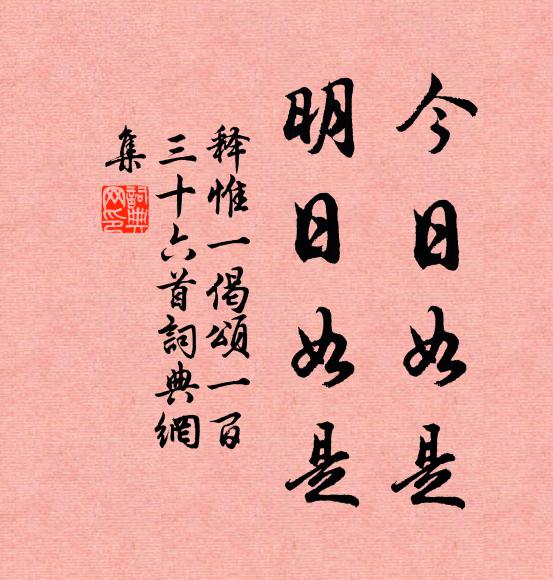 今日如是
明日如是
释惟一偈頌一百
三十六首詞典網
集
詞典网印